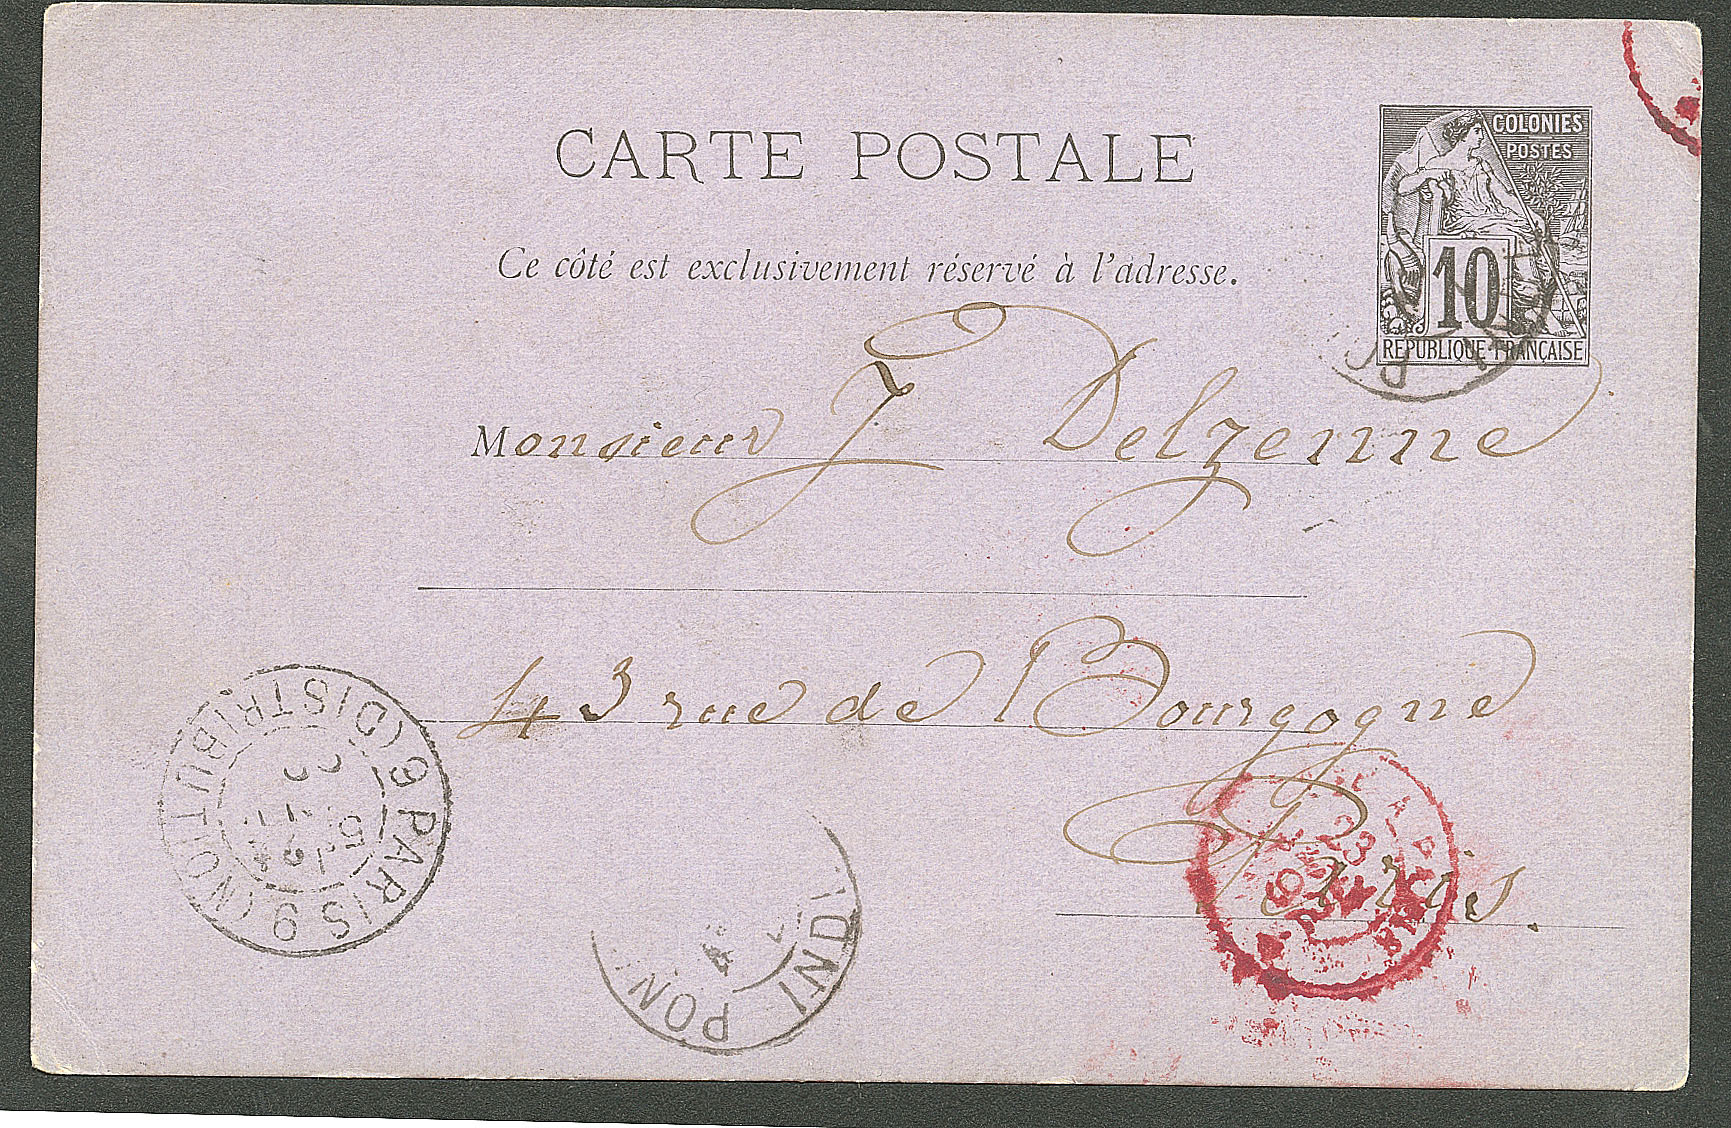 CARTE POSTALE
COLONIES
POSTES
10
REPUBLIQUE FRANÇAISE
Ce côté est exclusivement réservé à l'adresse.
Monsieur J Delzenne
43 rue de Bourgogne
Paris.
PARIS 9 (DISTRIBUTION)
23